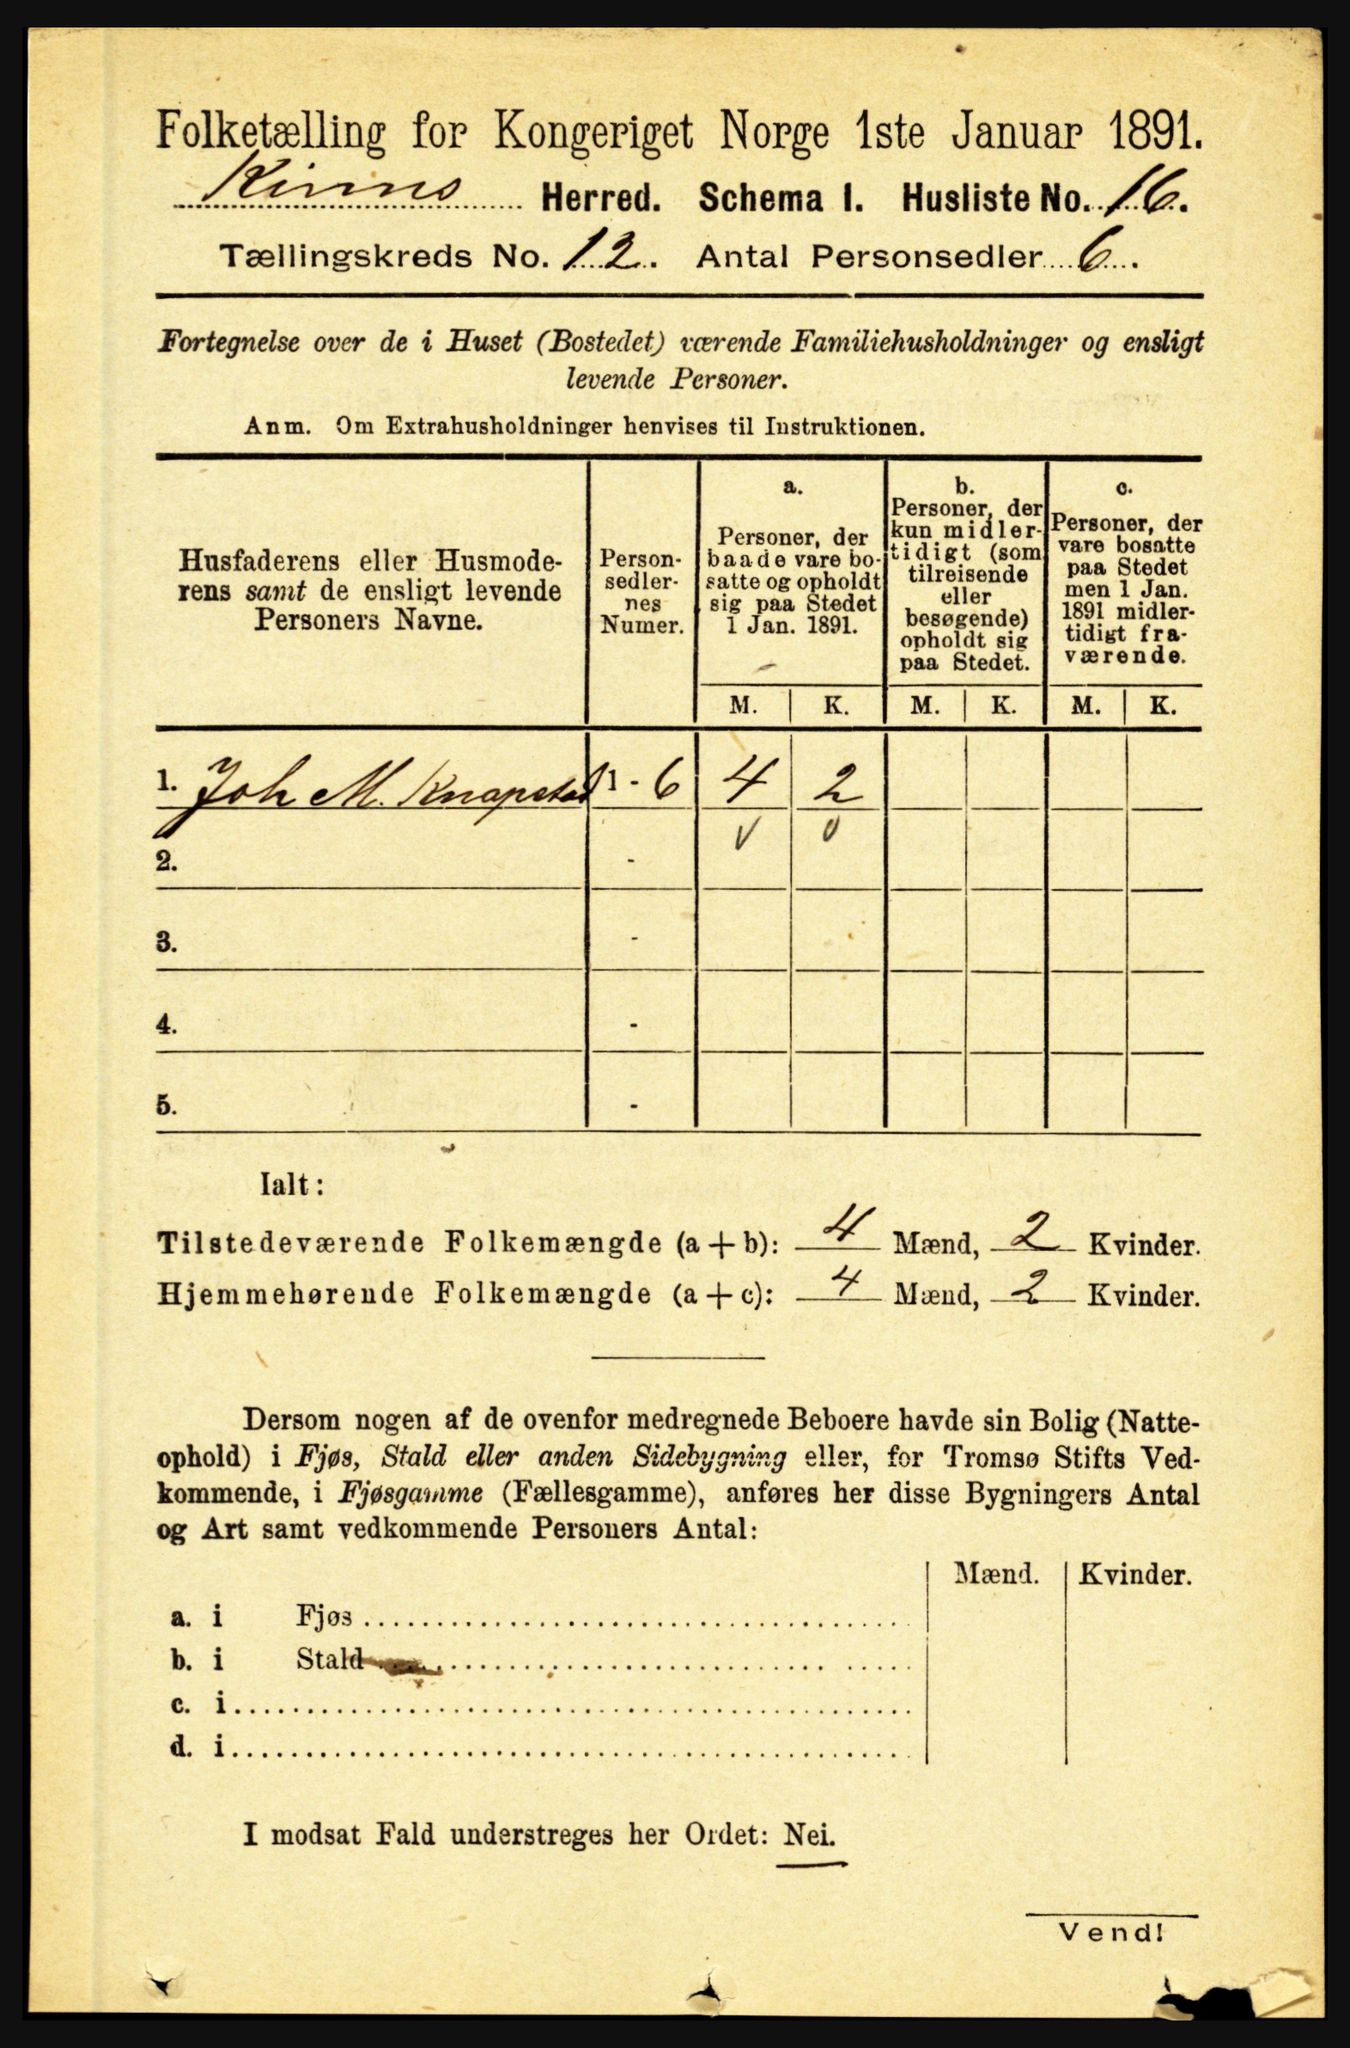 Folketælling for Kongeriget Norge 1ste Januar 1891.
Kinns Herred. Schema I. Husliste No. 16.
Tællingskreds No. 12. Antal Personsedler 6.
Fortegnelse over de i Huset (Bostedet) værende Familiehusholdninger og ensligt
levende Personer.
Anm. Om Extrahusholdninger henvises til Instruktionen.
Husfaderens eller Husmode-
rens samt de ensligt levende
Personers Navne.
Person-
sedler-
nes
Numer.
a.
Personer, der
baade vare bo-
satte og opholdt
sig paa Stedet
1 Jan. 1891.
b.
Personer, der
kun midler-
tidigt (som
tilreisende
eller
besøgende)
opholdt sig
paa Stedet.
c.
Personer, der
vare bosatte
paa Stedet
men 1 Jan.
1891 midler-
tidigt fra-
værende.
M. K. M. K. M. K.
1. Joh M. Knapstad 1 - 6 4 2
2. -
3. -
4. -
5. -
Ialt:
Tilstedeværende Folkemængde (a + b): 4 Mænd, 2 Kvinder.
Hjemmehørende Folkemængde (a + c): 4 Mænd, 2 Kvinder.
Dersom nogen af de ovenfor medregnede Beboere havde sin Bolig (Natte-
ophold) i Fjøs, Stald eller anden Sidebygning eller, for Tromsø Stifts Ved-
kommende, i Fjøsgamme (Fællesgamme), anføres her disse Bygningers Antal
og Art samt vedkommende Personers Antal:
Mænd. Kvinder.
a. i Fjøs
b. i Stald
c. i
d. i
I modsat Fald understreges her Ordet: Nei.
Vend!